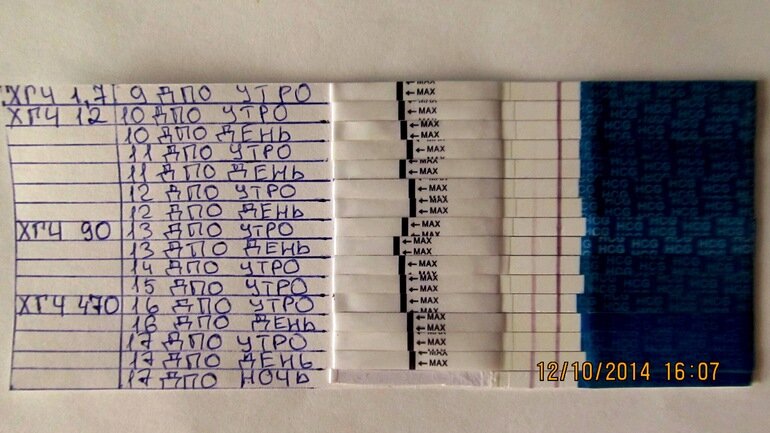 ХГЧ 1,7 9 ДПО УТРО ←MAX
ХГЧ 12 10 ДПО УТРО ←MAX
10 ДПО ДЕНЬ ←MAX
11 ДПО УТРО ←MAX
11 ДПО ДЕНЬ ←MAX
12 ДПО УТРО ←MAX
12 ДПО ДЕНЬ ←MAX
ХГЧ 90 13 ДПО УТРО ←MAX
13 ДПО ДЕНЬ ←MAX
14 ДПО УТРО ←MAX
15 ДПО УТРО ←MAX
ХГЧ 470 16 ДПО УТРО ←MAX
16 ДПО ДЕНЬ ←MAX
17 ДПО УТРО ←MAX
17 ДПО ДЕНЬ ←MAX
17 ДПО НОЧЬ
HCG HCG HCG HCG
12/10/2014 16:07